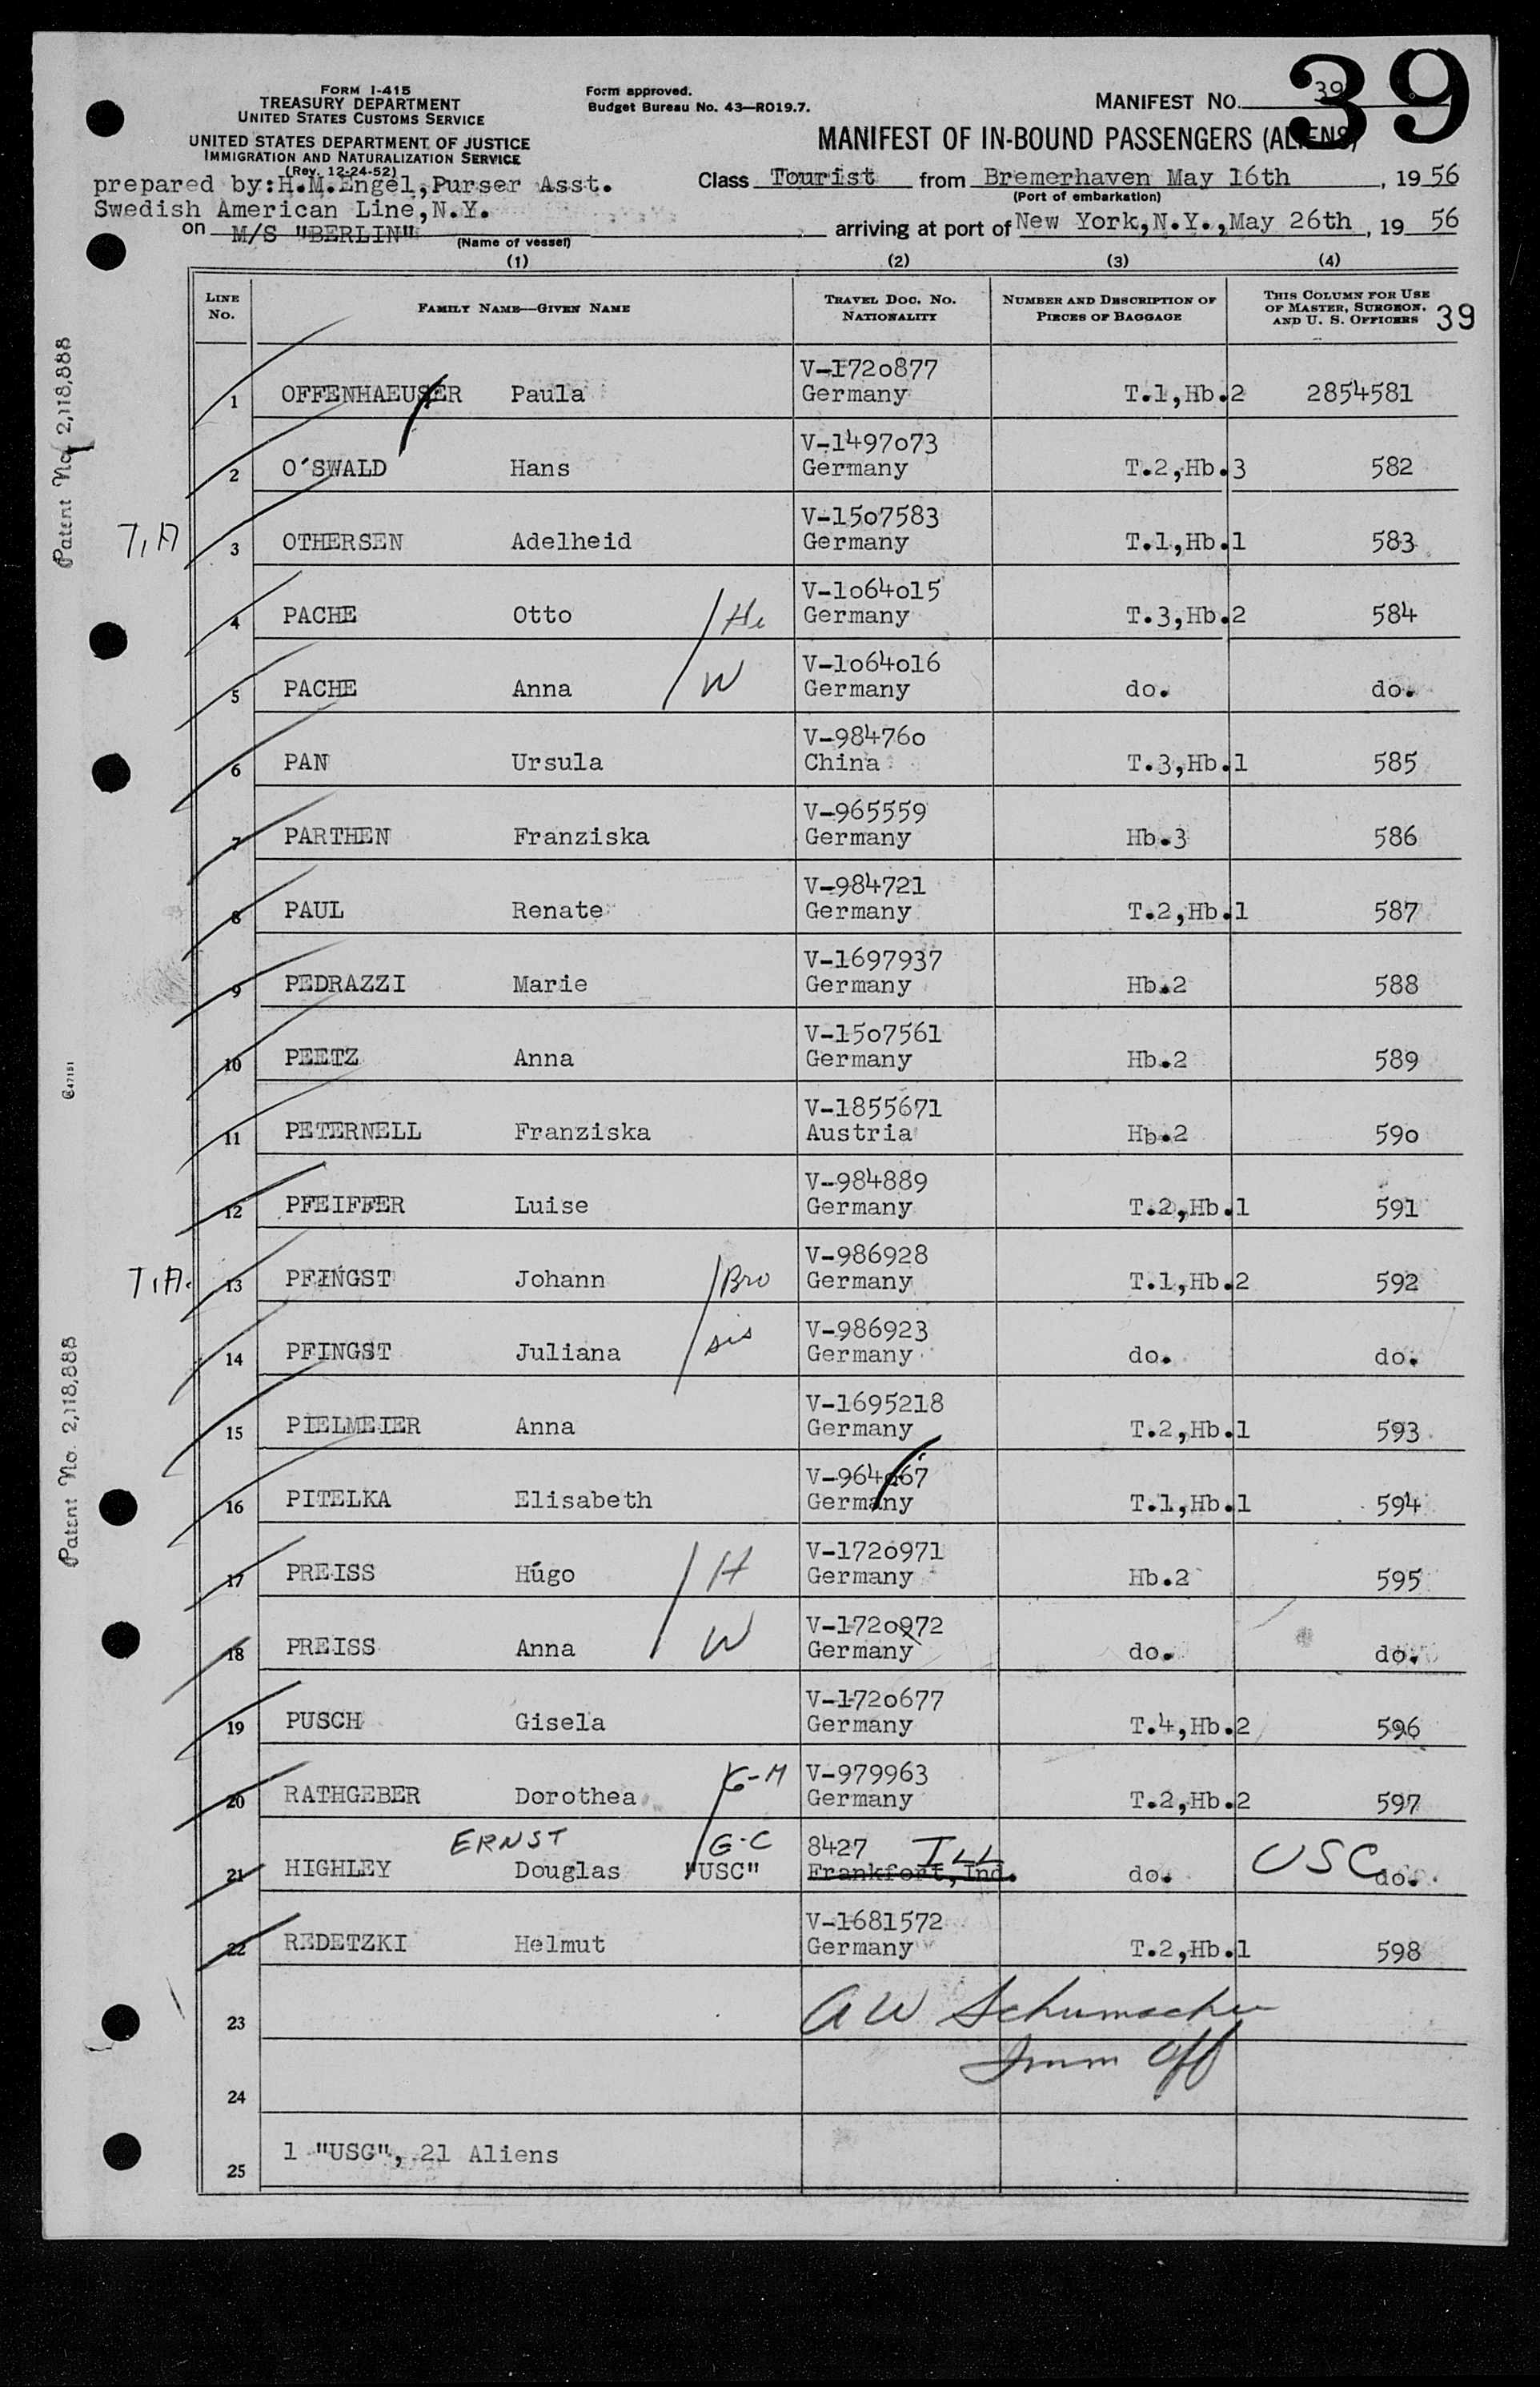 39
FORM I-415
TREASURY DEPARTMENT
UNITED STATES CUSTOMS SERVICE
UNITED STATES DEPARTMENT OF JUSTICE
IMMIGRATION AND NATURALIZATION SERVICE
(Rev. 12-24-52)
Form approved.
Budget Bureau No. 43—RO19.7.
MANIFEST NO. 39
MANIFEST OF IN-BOUND PASSENGERS (ALIENS)
prepared by:H.M.Engel,Purser Asst.
Swedish American Line,N.Y.
Class Tourist from Bremerhaven May 16th, 19 56
(Port of embarkation)
on M/S "BERLIN" arriving at port of New York,N.Y.,May 26th, 19 56
(Name of vessel)
(1) (2) (3) (4)
LINE NO. FAMILY NAME—GIVEN NAME TRAVEL DOC. NO. NATIONALITY NUMBER AND DESCRIPTION OF PIECES OF BAGGAGE THIS COLUMN FOR USE OF MASTER, SURGEON, AND U. S. OFFICERS 39
V-1720877
1 OFFENHAEUSER Paula Germany T.1,Hb.2 2854581
V-1497073
2 O'SWALD Hans Germany T.2,Hb.3 582
V-1507583
T.A 3 OTHERSEN Adelheid Germany T.1,Hb.1 583
V-1064015
4 PACHE Otto Germany T.3,Hb.2 584
V-1064016
5 PACHE Anna W Germany do. do.
V-984760
6 PAN Ursula China T.3,Hb.1 585
V-965559
7 PARTHEN Franziska Germany Hb.3 586
V-984721
8 PAUL Renate Germany T.2,Hb.1 587
V-1697937
9 PEDRAZZI Marie Germany Hb.2 588
V-1507561
10 PEETZ Anna Germany Hb.2 589
V-1855671
11 PETERNELL Franziska Austria Hb.2 590
V-984889
12 PFEIFFER Luise Germany T.2,Hb.1 591
V-986928
T.A. 13 PFINGST Johann Bro Germany T.1,Hb.2 592
V-986923
14 PFINGST Juliana sis Germany do. do.
V-1695218
15 PIELMEIER Anna Germany T.2,Hb.1 593
V-964067
16 PITELKA Elisabeth Germany T.1,Hb.1 594
V-1720971
17 PREISS Húgo H Germany Hb.2 595
V-1720972
18 PREISS Anna W Germany do. do.
V-1720677
19 PUSCH Gisela Germany T.4,Hb.2 596
G-M V-979963
20 RATHGEBER Dorothea Germany T.2,Hb.2 597
ERNST G-C 8427 ILL USC
21 HIGHLEY Douglas "USC" Frankfort,Ind. do. do.
V-1681572
22 REDETZKI Helmut Germany T.2,Hb.1 598
23 A W Schumacher
Imm Off
24
25 1 "USC", 21 Aliens
Patent No. 2,118,888
Patent No. 2,118,888